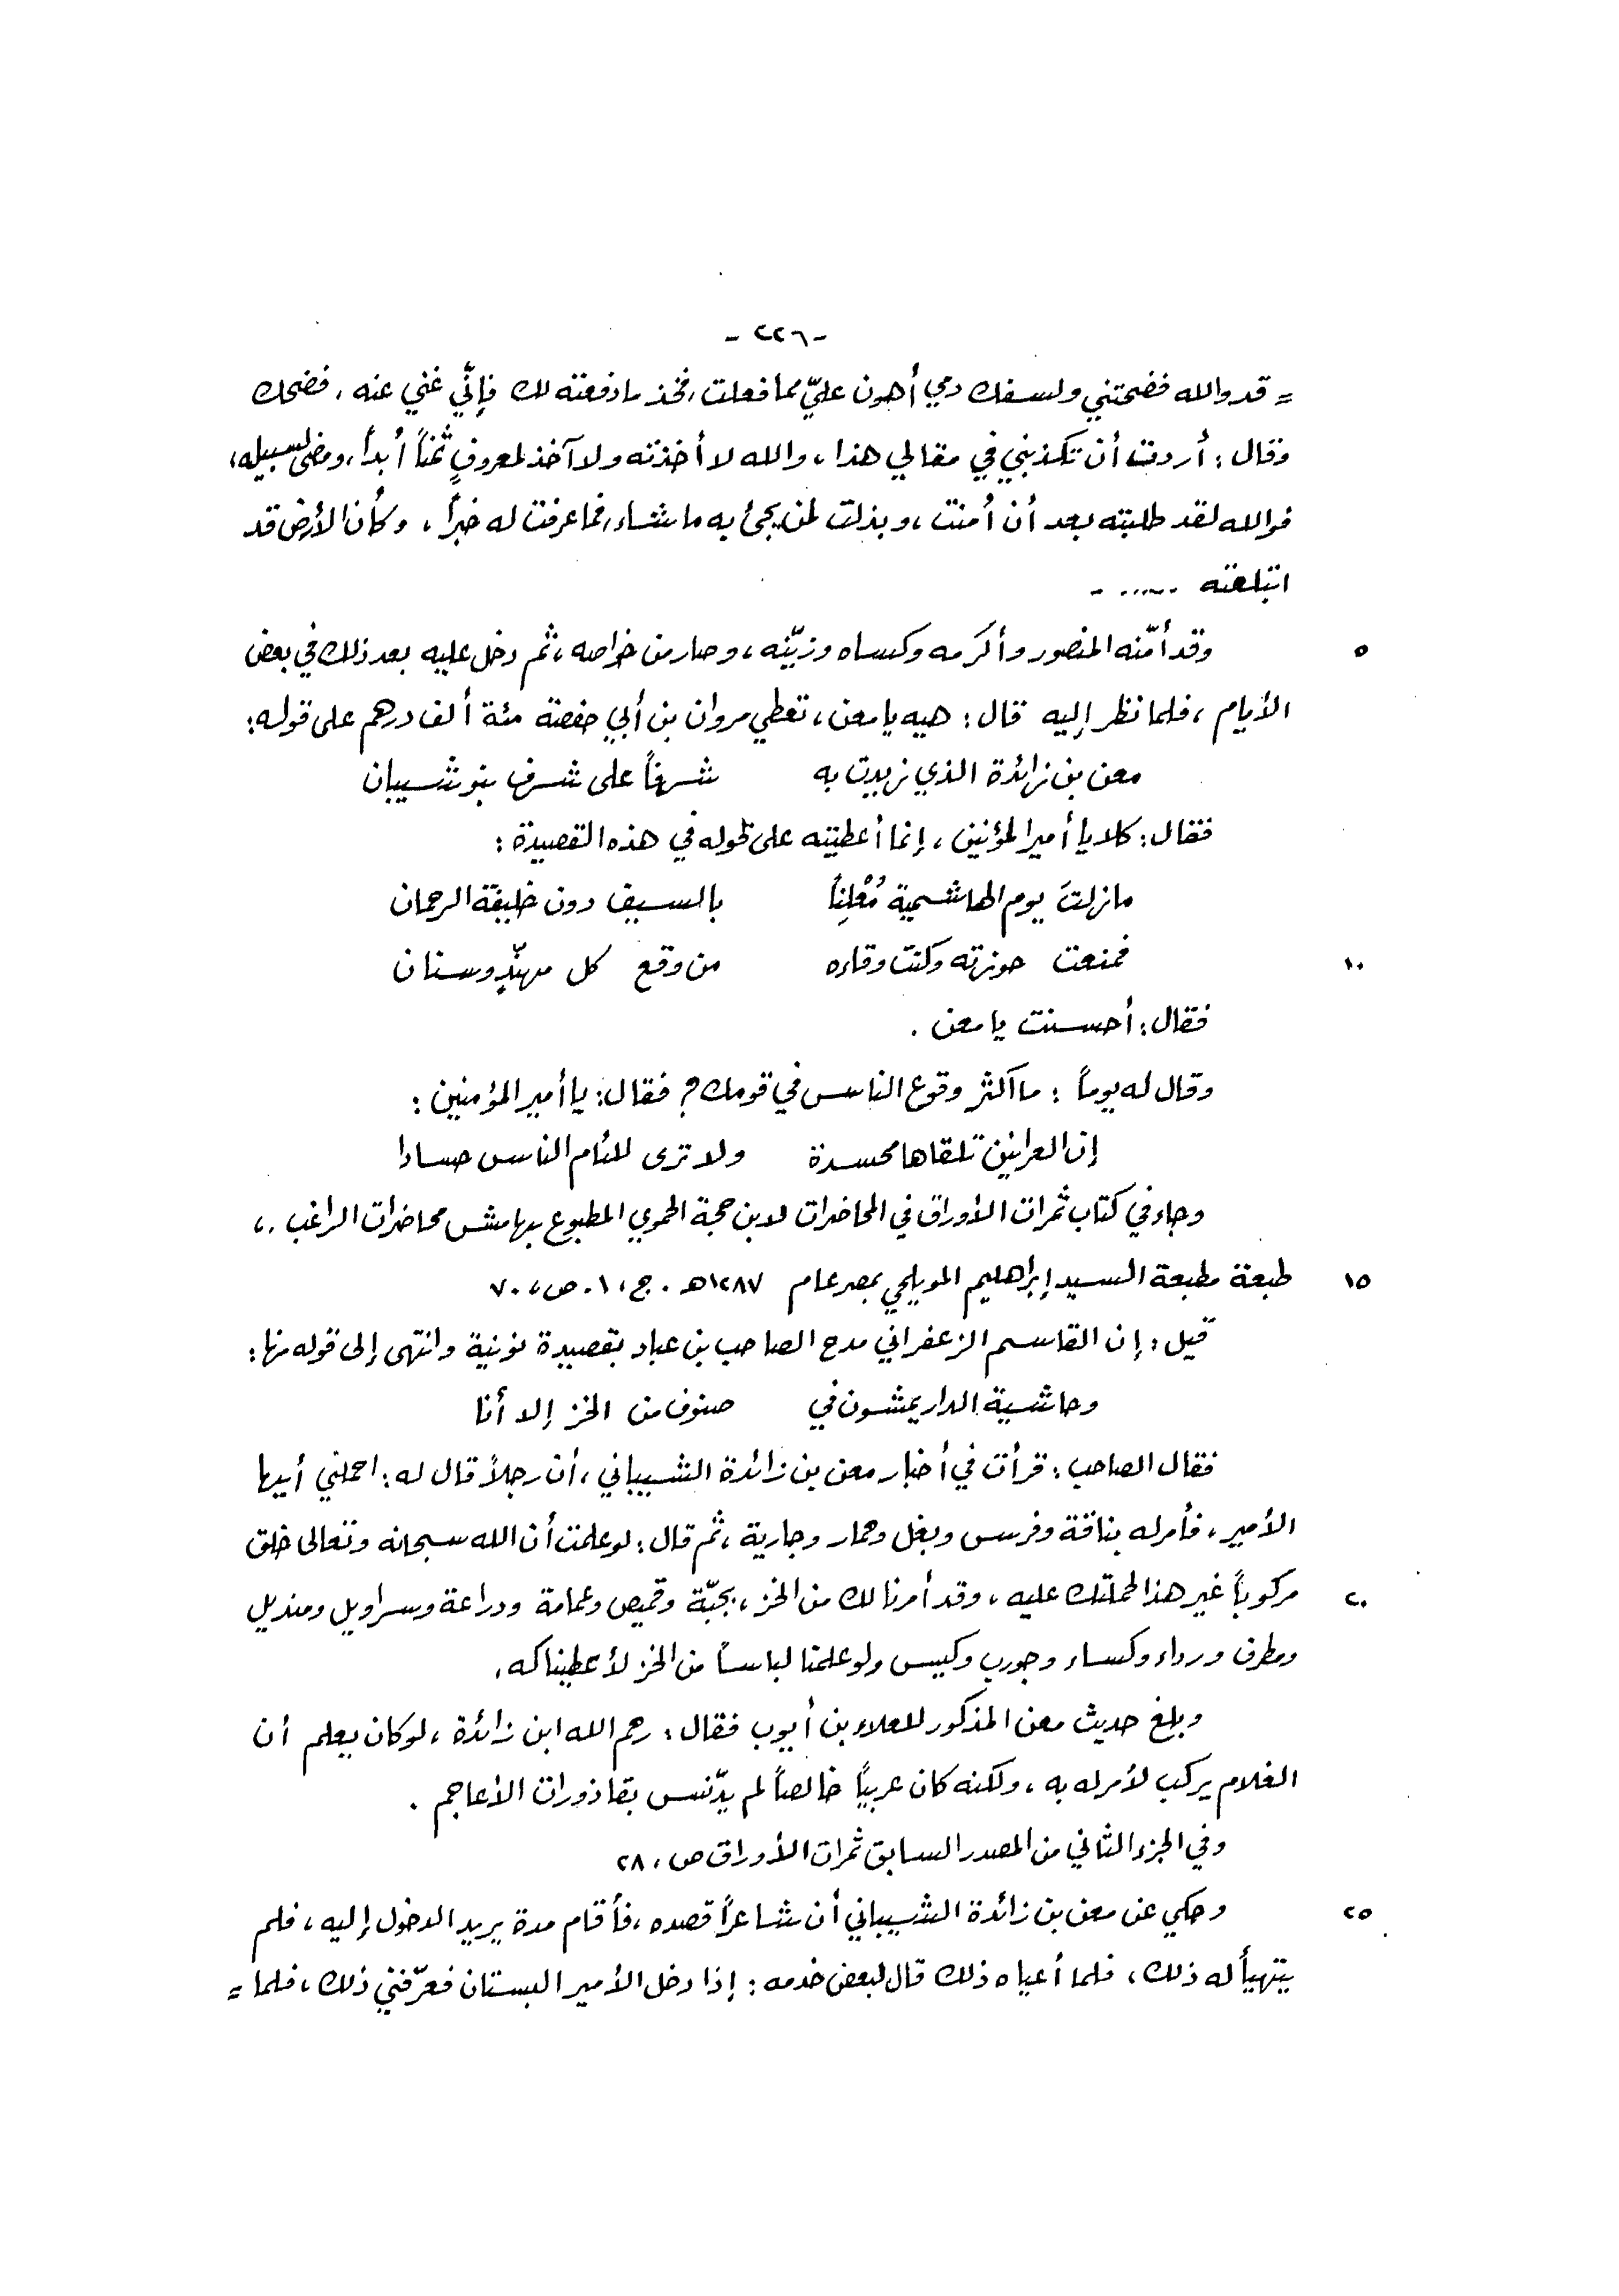 -٢٢٦-
= قد والله فضحتني ولسفك دمي أهون عليّ مما فعلت، فخذ ما دفعته لك فإنّي غني عنه، فضحك
وقال: أردت أن تكذبني في مقالي هذا، والله لا أخذته ولا آخذ لمعروفٍ ثمناً أبداً، ومضى لسبيله،
فوالله لقد طلبته بعد أن أُمنت، وبذلت لمن يجئ به ما شاء، فما عرفت له خبراً، وكأن الأرض قد
ابتلعته ......
٥ وقد أمّنه المنصور وأكرمه وكساه وزيّنه، وصار من خواصه، ثم دخل عليه بعد ذلك في بعض
الأيام، فلما نظر إليه قال: هيه يا معن، تعطي مروان بن أبي حفصة مئة ألف درهم على قوله:
معن بن زائدة الذي زيدت به شرفاً على شرف بنو شيبان
فقال: كلا يا أمير المؤنين، إنما أعطيته على قوله في هذه القصيدة:
مازلتَ يوم الهاشمية مُعْلِناً بالسيف دون خليفة الرحمان
١٠ فمنعت حوزته وكنت وقاءه من وقع كل مهنّدٍ وسنان
فقال: أحسنت يا معن.
وقال له يوماً: ما أكثر وقوع الناس في قومك؟ فقال: يا أمير المؤمنين:
إن العرانين تلقاها محسدة ولا ترى للئام الناس حسادا
وجاء في كتاب ثمرات الأوراق في المحاضرات لابن حجة الحموي المطبوع بهامش محاضرات الراغب،
١٥ طبعة مطبعة السيد إبراهيم المويلحي بمصر عام ١٢٨٧هـ. ج، ١. ص، ٧٠
قيل: إن القاسم الزعفراني مدح الصاحب بن عباد بقصيدة نونية وانتهى إلى قوله منها:
وحاشية الدار يمشون في صنوف من الخز إلا أنا
فقال الصاحب: قرأت في أخبار معن بن زائدة الشيباني، أن رجلاً قال له: احملني أيها
الأمير، فأمر له بناقة وفرس وبغل وحمار وجارية، ثم قال: لو علمت أن الله سبحانه وتعالى خلق
٢٠ مركوباً غير هذا لحملتك عليه، وقد أمرنا لك من الخز، بجبّة وقميص وعمامة ودراعة وسراويل ومنديل
ومطرف ورداء وكساء وجورب وكيس ولو علمنا لباساً من الخز لأعطيناكه.
وبلغ حديث معن المذكور للعلاء بن أيوب فقال: رحم الله ابن زائدة، لو كان يعلم أن
الغلام يركب لأمر له به، ولكنه كان عربياً خالصاً لم يدّنس بقاذورات الأعاجم.
وفي الجزء الثاني من المصدر السابق ثمرات الأوراق ص، ٢٨
٢٥ وحكي عن معن بن زائدة الشيباني أن شاعراً قصده، فأقام مدة يريد الدخول إليه، فلم
يتهيأ له ذلك، فلما أعياه ذلك قال لبعض خدمه: إذا دخل الأمير البستان فعرّفني ذلك، فلما =